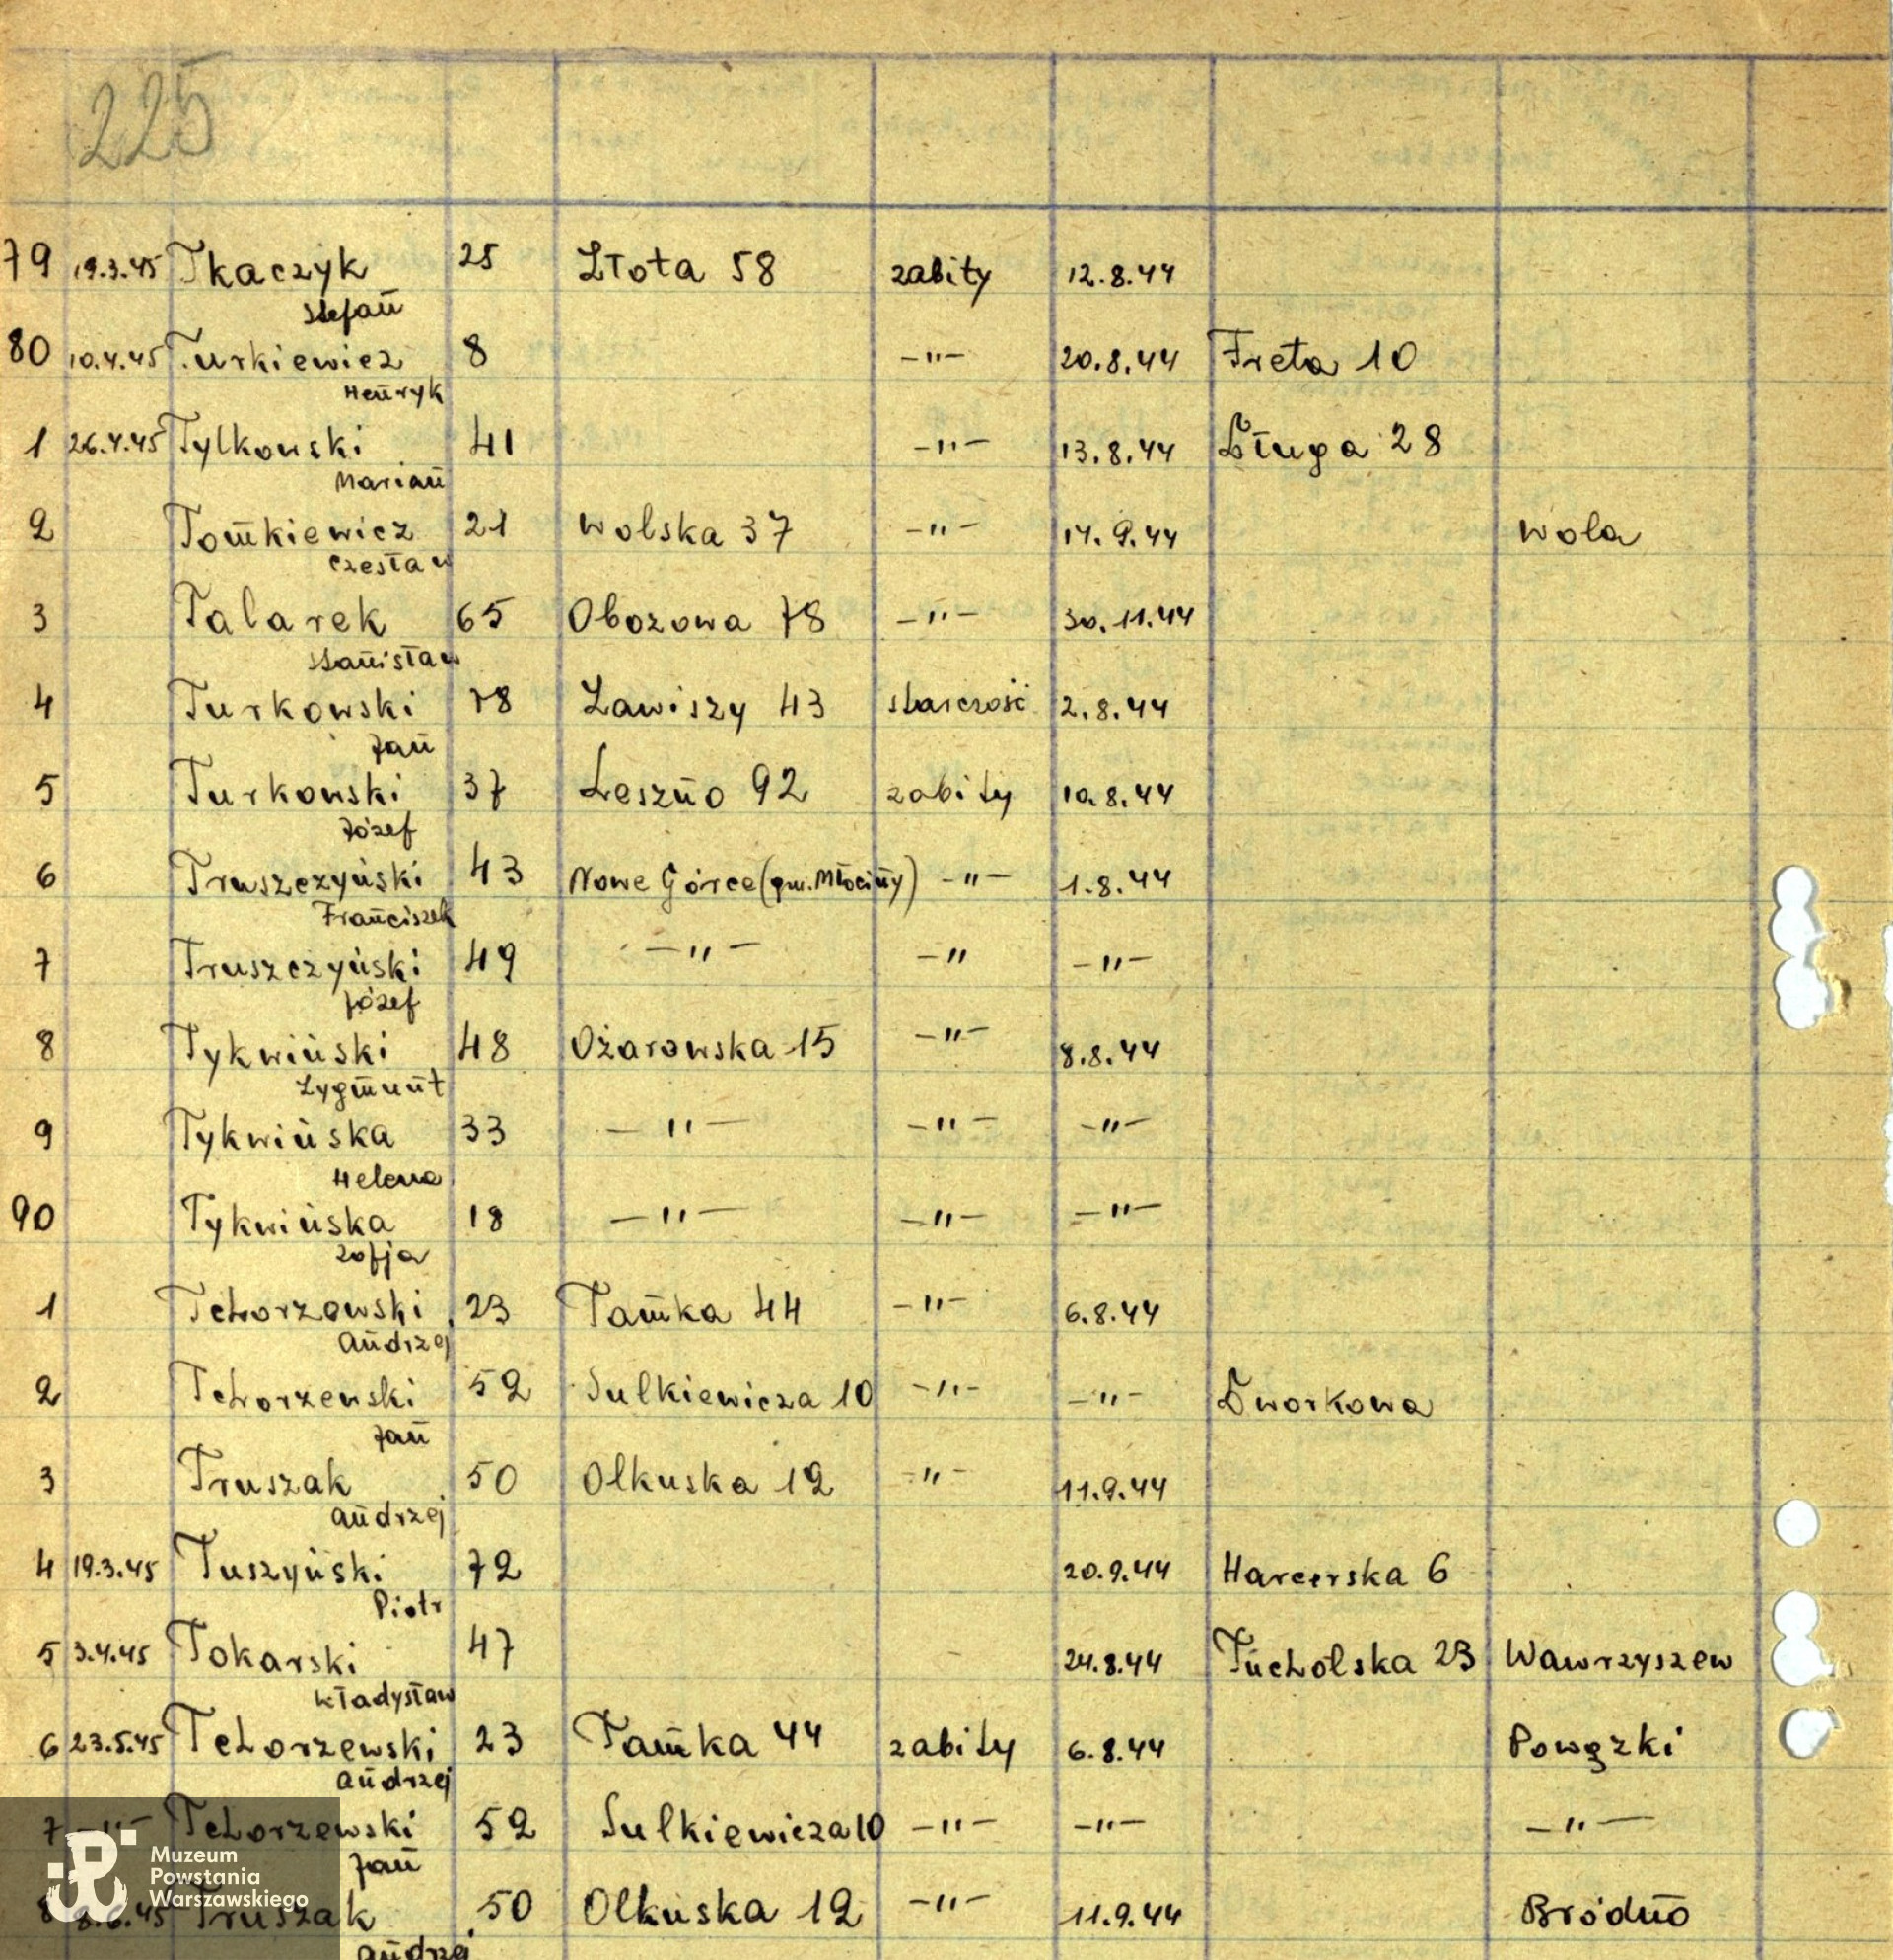 225
79 19.3.45 Tkaczyk 25 Złota 58 zabity 12.8.44
Stefan
80 10.4.45 Turkiewicz 8 -"- 20.8.44 Freta 10
Henryk
1 26.4.45 Tylkowski 41 -"- 13.8.44 Długa 28
Marian
2 Tomkiewicz 21 Wolska 37 -"- 14.9.44 Wola
Czesław
3 Talarek 65 Obozowa 78 -"- 30.11.44
Stanisław
4 Turkowski 78 Zawiszy 43 starczość 2.8.44
Jan
5 Turkowski 37 Leszno 92 zabity 10.8.44
Józef
6 Truszczyński 43 Nowe Górce (gm. Młociny) -"- 1.8.44
Franciszek
7 Truszczyński 49 -"- -" -"-
Józef
8 Tykwiński 48 Ożarowska 15 -"- 8.8.44
Zygmunt
9 Tykwińska 33 -"- -"- -"-
Helena
90 Tykwińska 18 -"- -"- -"-
Zofja
1 Tchorzowski 23 Tamka 44 -"- 6.8.44
Andrzej
2 Tchorzewski 52 Sulkiewicza 10 -"- -"- Dworkowa
Jan
3 Truszak 50 Olkuska 12 -"- 11.9.44
Andrzej
4 19.3.45 Tuszyński 72 20.9.44 Harcerska 6
Piotr
5 3.4.45 Tokarski 47 24.8.44 Tucholska 23 Wawrzyszew
Władysław
6 23.5.45 Tchorzewski 23 Tamka 44 zabity 6.8.44 Powązki
Andrzej
7 -"- Tchorzewski 52 Sulkiewicza 10 -"- -"- -"-
Jan
8 8.6.45 Truszak 50 Olkuska 12 -"- 11.9.44 Bródno
Andrzej
Muzeum
Powstania
Warszawskiego